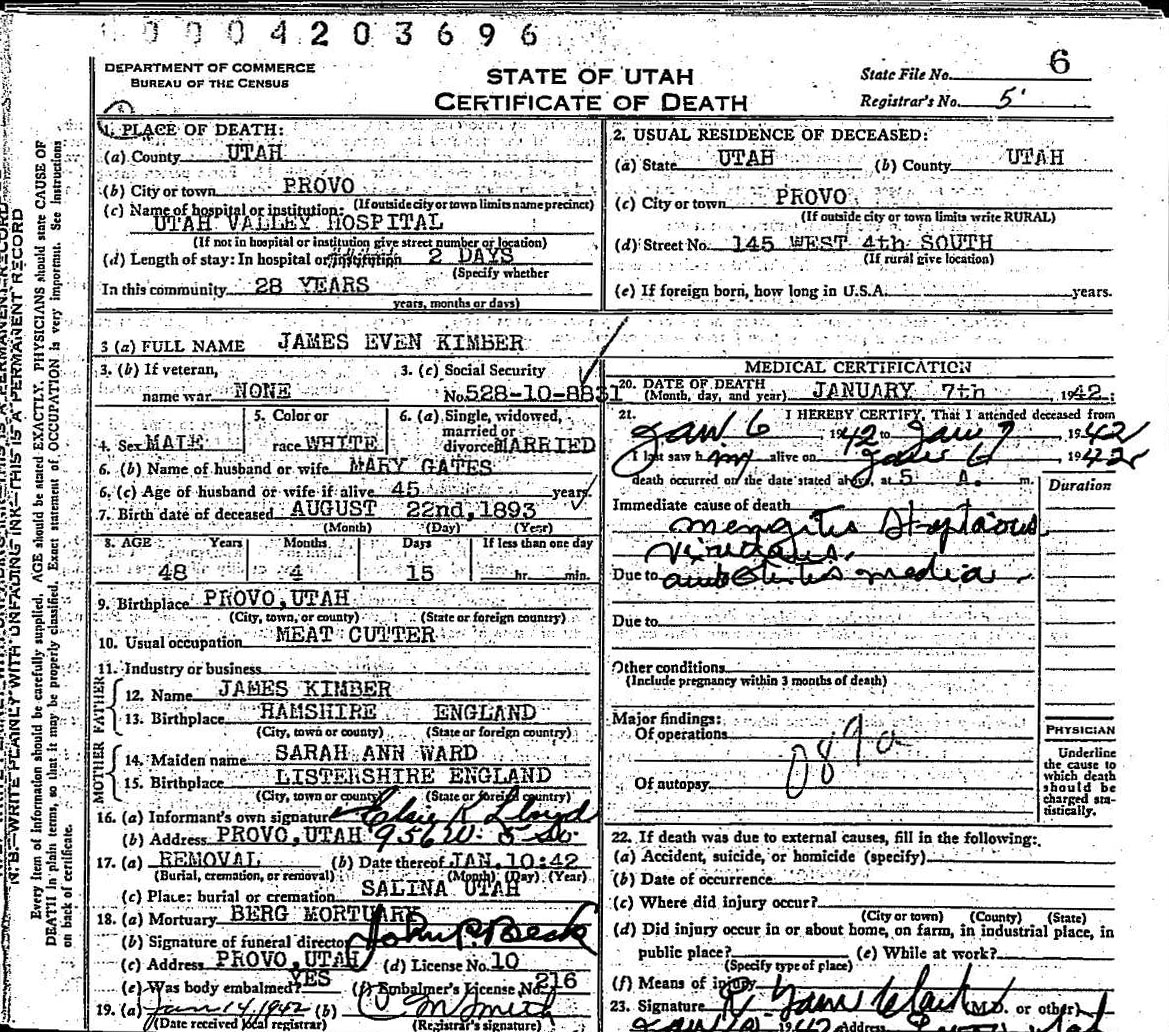 0004203696
DEPARTMENT OF COMMERCE
BUREAU OF THE CENSUS
STATE OF UTAH
CERTIFICATE OF DEATH
State File No. 6
Registrar's No. 5
1. PLACE OF DEATH:
(a) County UTAH
(b) City or town PROVO
(If outside city or town limits name precinct)
(c) Name of hospital or institution:
UTAH VALLEY HOSPITAL
(If not in hospital or institution give street number or location)
(d) Length of stay: In hospital or institution 2 DAYS
(Specify whether
In this community 28 YEARS
years, months or days)
2. USUAL RESIDENCE OF DECEASED:
(a) State UTAH (b) County UTAH
(c) City or town PROVO
(If outside city or town limits write RURAL)
(d) Street No. 145 WEST 4th SOUTH
(If rural give location)
(e) If foreign born, how long in U.S.A. years.
3 (a) FULL NAME JAMES EVEN KIMBER
3. (b) If veteran, 3. (c) Social Security
name war NONE No. 528-10-8831
4. Sex MALE 5. Color or race WHITE 6. (a) Single, widowed, married or divorced MARRIED
6. (b) Name of husband or wife MARY GATES
6. (c) Age of husband or wife if alive 45 years
7. Birth date of deceased AUGUST 22nd, 1893
(Month) (Day) (Year)
8. AGE Years Months Days If less than one day
48 4 15 hr. min.
9. Birthplace PROVO, UTAH
(City, town, or county) (State or foreign country)
10. Usual occupation MEAT CUTTER
11. Industry or business
FATHER
12. Name JAMES KIMBER
13. Birthplace HAMSHIRE ENGLAND
(City, town or county) (State or foreign country)
MOTHER
14. Maiden name SARAH ANN WARD
15. Birthplace LISTERSHIRE ENGLAND
(City, town or county) (State or foreign country)
16. (a) Informant's own signature Elsie K Lloyd
(b) Address PROVO, UTAH 956 W. 5 So
17. (a) REMOVAL (b) Date thereof JAN. 10:42
(Burial, cremation, or removal) (Month) (Day) (Year)
(c) Place: burial or cremation SALINA UTAH
18. (a) Mortuary BERG MORTUARY
(b) Signature of funeral director John P. Beck
(c) Address PROVO, UTAH (d) License No. 10
(e) Was body embalmed? YES (f) Embalmer's License No. 216
19. (a) Jan 14, 1942 (b) M Smith
(Date received local registrar) (Registrar's signature)
MEDICAL CERTIFICATION
20. DATE OF DEATH
(Month, day, and year) JANUARY 7th, 1942:
21. I HEREBY CERTIFY, That I attended deceased from
Jan. 6 1942 to Jan 7 1942
I last saw him alive on Jan 6 1942
death occurred on the date stated above, at 5 A. m.
Duration
Immediate cause of death
viridans
Due to otitis media
Due to
Other conditions
(Include pregnancy within 3 months of death)
Major findings:
Of operations
089a
Of autopsy
PHYSICIAN
Underline
the cause to
which death
should be
charged sta-
tistically.
22. If death was due to external causes, fill in the following:
(a) Accident, suicide, or homicide (specify)
(b) Date of occurrence
(c) Where did injury occur?
(City or town) (County) (State)
(d) Did injury occur in or about home, on farm, in industrial place, in
public place? (e) While at work?
(Specify type of place)
(f) Means of injury
23. Signature Clark (M.D. or other)
1942 Address
N. B.—WRITE PLAINLY WITH UNFADING INK—THIS IS A PERMANENT RECORD
Every item of information should be carefully supplied. AGE should be stated EXACTLY. PHYSICIANS should state CAUSE OF
DEATH in plain terms, so that it may be properly classified. Exact statement of OCCUPATION is very important. See instructions
on back of certificate.